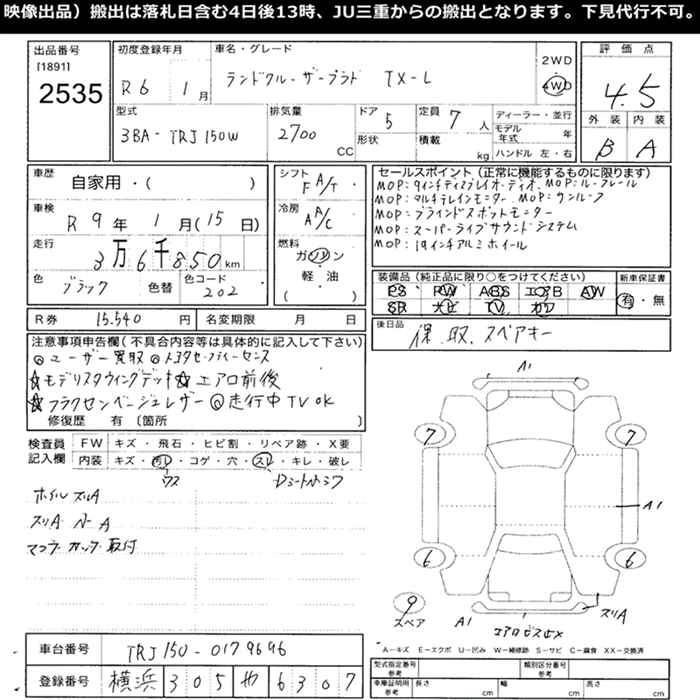 映像出品）搬出は落札日含む4日後13時、JU三重からの搬出となります。下見代行不可。
出品番号
[1891]
2535
初度登録年月
R6 1月
車名・グレード
ランドクルーザープラド TX-L
2WD
4WD
評価点
4.5
外装 内装
B A
型式
3BA-TRJ150W
排気量
2700 CC
ドア 5
形状
定員 7人
積載 kg
ディーラー・並行
モデル年式 年
ハンドル 左・右
車歴
自家用・( )
車検
R 9年 1月(15日)
走行
3万6千850km
色
ブラック
色替
色コード
202
シフト
F A/T
冷房
A A/C
燃料
ガソリン
軽・油
( )
セールスポイント（正常に機能するものに限ります）
MOP:9インチディスプレイオーディオ、MOP:ルーフレール
MOP:マルチテレインモニター、MOP:サンルーフ
MOP:ブラインドスポットモニター
MOP:スーパーライブサウンドシステム
MOP:19インチアルミホイール
装備品（純正品に限り○をつけてください）
PS PW ABS エアB AW
SR ナビ TV カワ
新車保証書
有・無
R券 15.540円
名変期限 月 日
後日品
保、取、スペアキー
注意事項申告欄（不具合内容等は具体的に記入して下さい）
◎ユーザー買取 ◎トヨタセーフティーセンス
☆モデリスタウイングデッキ ☆エアロ前後
☆フラクセンベージュレザー ◎走行中TVOK
修復歴 有〔箇所
検査員記入欄
FW キズ・飛石・ヒビ割・リペア跡・X要
内装 キズ・汚レ・コゲ・穴・スレ・キレ・破レ
ホイルスリA
スリA
マフラーカッター取付
A1
7 7
A1
6 6
9
スペア
A1
スリA
A－キズ E－エクボ U－凹み W－補修跡 S－サビ C－腐食 XX－交換済
車台番号
TRJ150-0179696
登録番号
横浜 305 や 6307
型式指定番号
参考
類別区分番号
参考
車庫証明用
参考
長さ cm
幅 cm
高さ cm